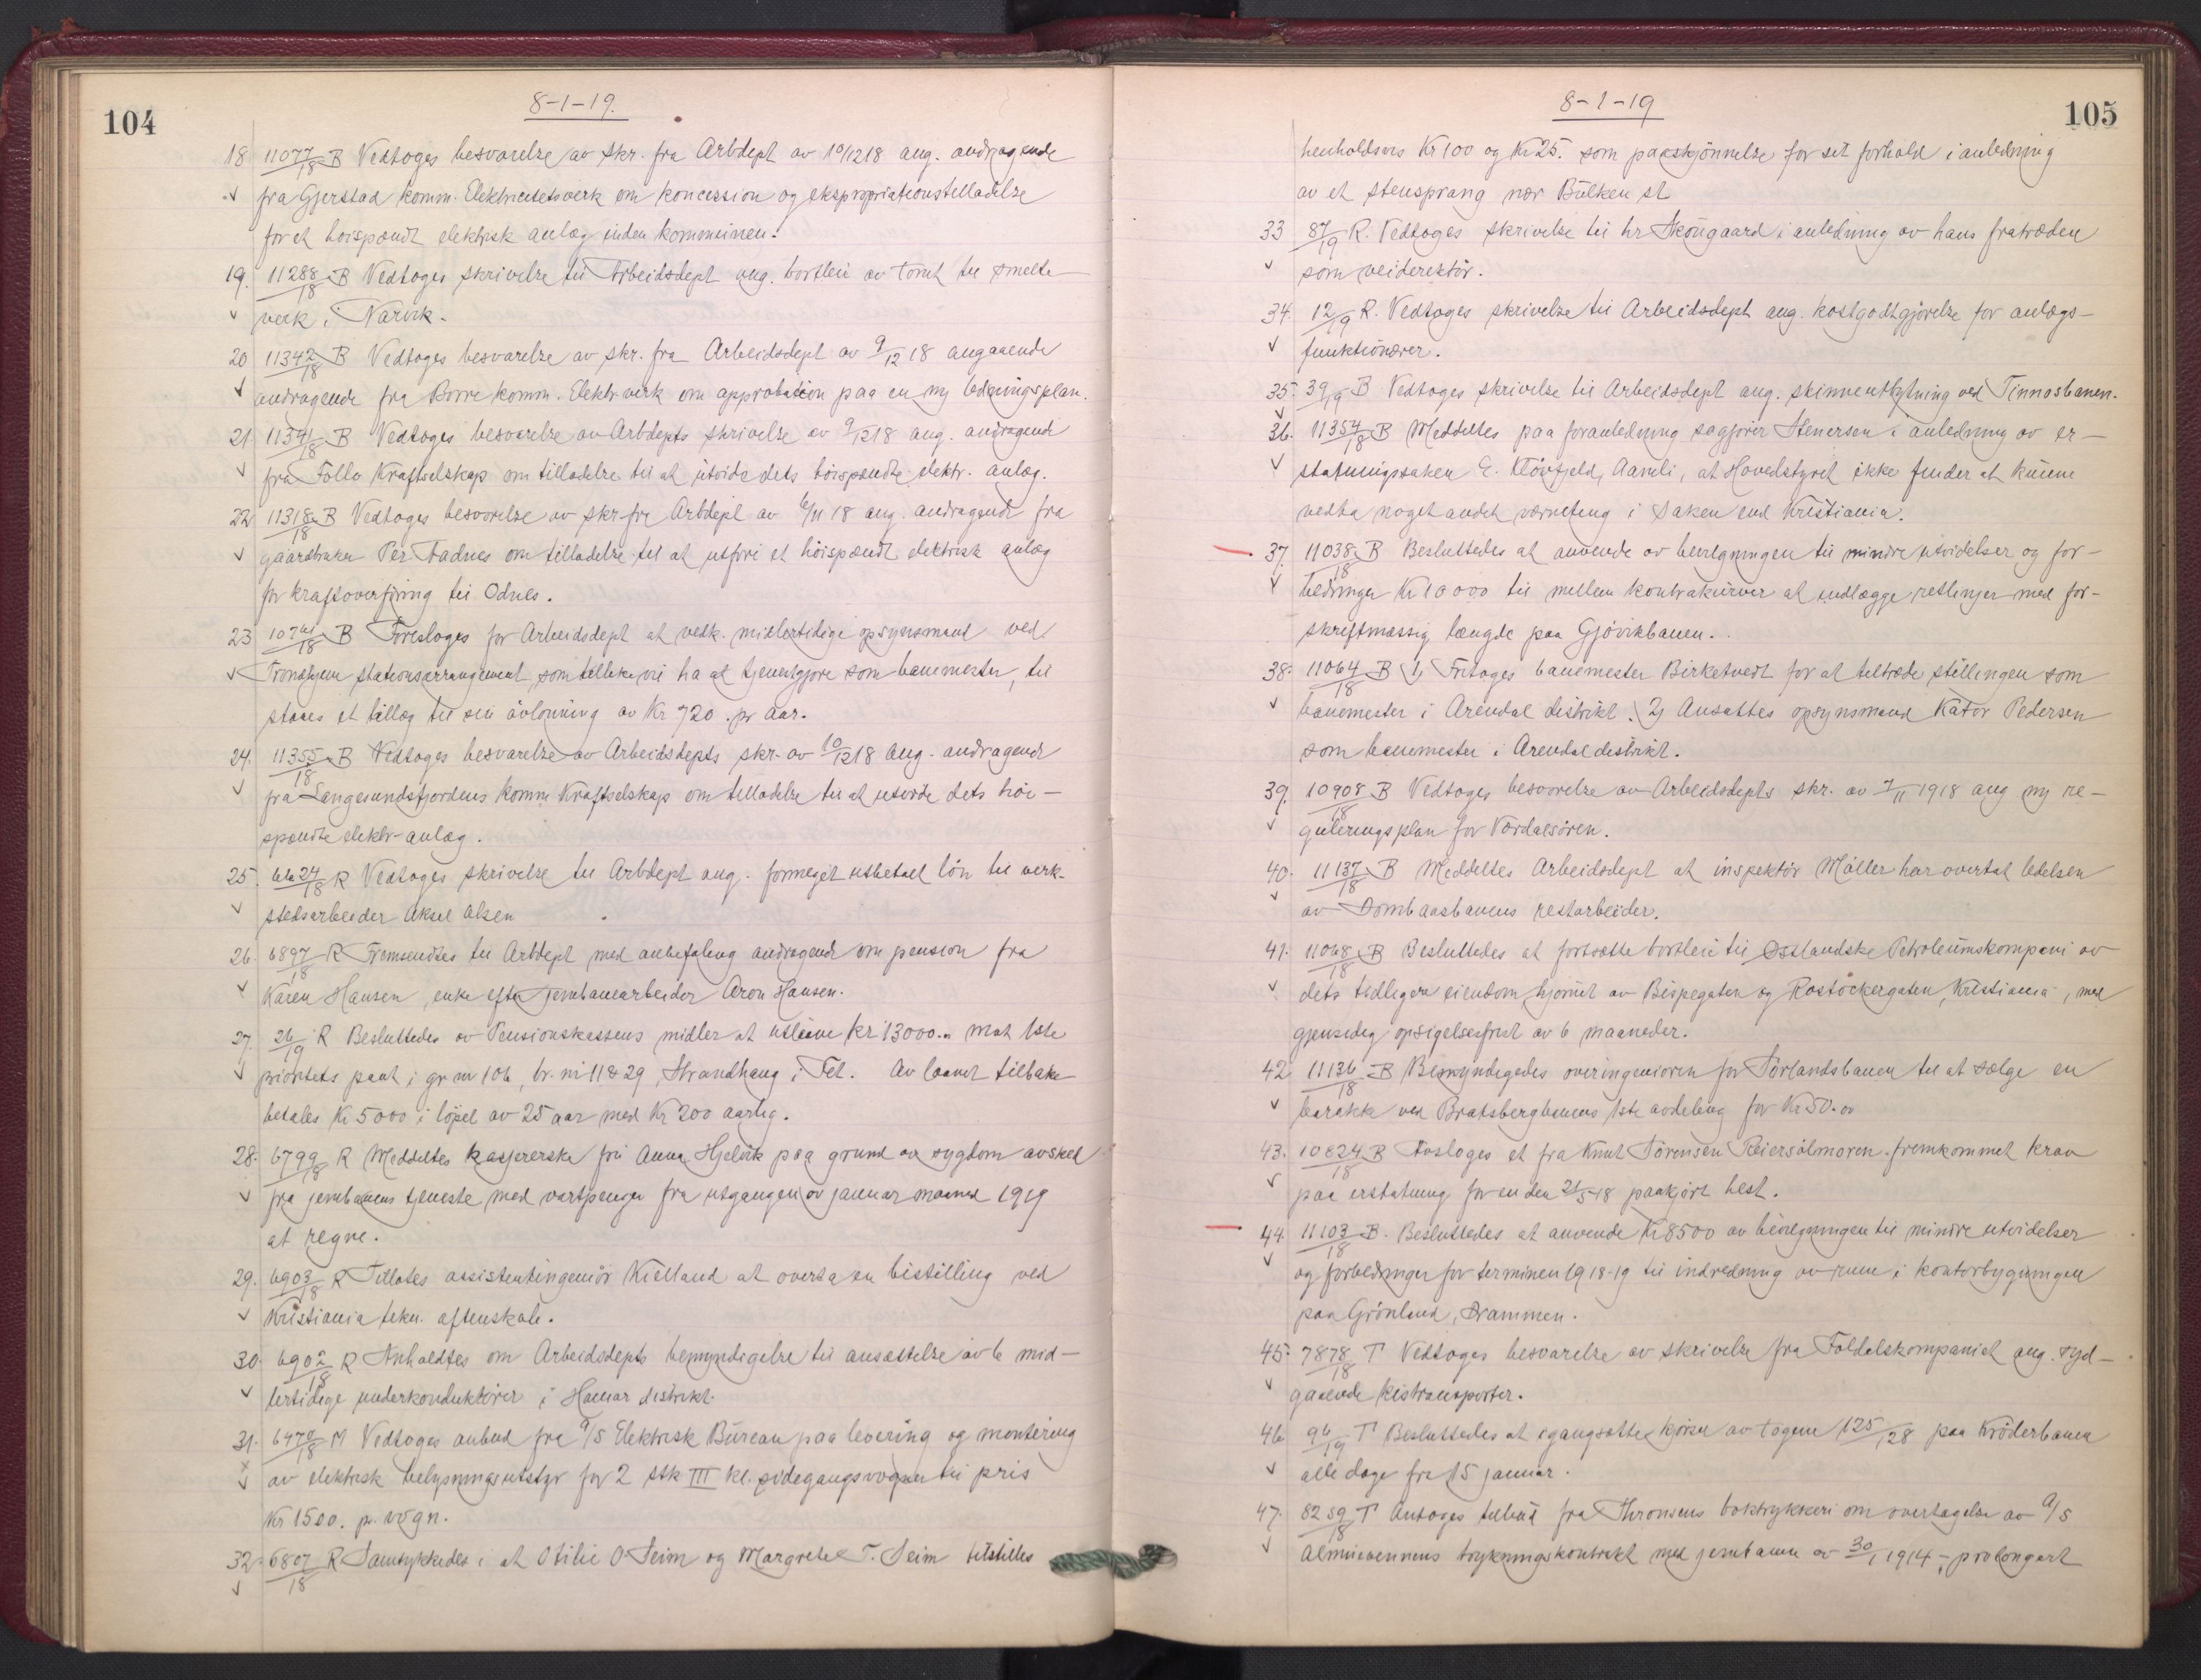 104
8-1-19.
18 11077/18 B Vedtoges besvarelse av skr. fra Arbdept av 10/12 18 ang. andragende
fra Gjerstad komm. Elektricitetsverk om koncession og ekspropriationstilladelse
for et høispændt elektrisk anlæg inden kommunen.
19. 11288/18 B Vedtoges skrivelse til Arbeidsdept ang. bortleie av tomt til smelte-
verk i Narvik.
20 11342/18 B Vedtoges besvarelse av skr. fra Arbeidsdept av 9/12 18 angaaende
andragende fra Borre komm. Elektr.verk om approbation paa en ny ledningsplan.
21. 11341/18 B Vedtoges besvarelse av Arbdepts skrivelse av 9/12 18 ang. andragende
fra Follo Kraftselskap om tilladelse til at utvide dets høispændte elektr. anlæg.
22 11318/18 B Vedtoges besvarelse av skr fra Arbdept av 6/11 18 ang. andragende fra
gaardbruker Per Fadnes om tilladelse til at utføre et høispændt elektrisk anlæg
for kraftoverføring til Odnes.
23 10741/18 B Foresloges for Arbeidsdept at vedk. midlertidige opsynsmand ved
Trondhjem stationsarrangement, som tillike vil ha at tjenestgjøre som banemester, til
staaes et tillæg til sin avlønning av Kr 720. pr aar.
24. 11355/18 B Vedtoges besvarelse av Arbeidsdepts skr. av 10/12 18 ang. andragende
fra Langesundsfjordens komm Kraftselskap om tilladelse til at utvide dets høi-
spændte elektr-anlæg.
25. 6624/18 R Vedtoges skrivelse til Arbdept ang. formeget utbetalt løn til verk-
stedsarbeider Aksel Olsen
26. 6897/18 R Fremsendtes til Arbdept med anbefaling andragende om pension fra
Karen Hansen, enke efter jernbanearbeider Aron Hansen.
27. 26/19 R Besluttedes av Pensionskassens midler at utlaane kr 13000.- mot 1ste
prioritets pant i gr nr 106, br. nr 11 & 29, Strandhaug i Fet. Av laanet tilbake
betales Kr 5000 i løpet av 25 aar med Kr 200 aarlig.
28. 6799/18 R Meddeltes kasjererske frk Anna Hjelvik paa grund av sygdom avsked
fra jernbanens tjeneste med vartpenger fra utgangen av januar maaned 1919
at regne.
29. 6903/18 R Tillotes assistentingeniør Kielland at overta en bistilling ved
Kristiania tekn. aftenskole.
30. 6902/18 R Anholdtes om Arbeidsdepts bemyndigelse til ansættelse av 6 mid-
lertidige underkonduktører i Hamar distrikt.
31. 6470/18 M Vedtoges anbud fra A/S Elektrisk Bureau paa levering og montering
av elektrisk belysningsutstyr for 2 stk III kl. sidegangsvogner til pris
Kr 1500. pr. vogn.
32. 6807/18 R Samtykkedes i at Otilie O Seim og Margrete T. Seim tilstilles
105
8-1-19
henholdsvis Kr 100 og Kr 25. som paaskjønnelse for sit forhold i anledning
av et stensprang nær Bulken st
33 87/19 R. Vedtoges skrivelse til hr Skougaard i anledning av hans fratræden
som veidirektør.
34. 12/19 R. Vedtoges skrivelse til Arbeidsdept ang. kostgodtgjørelse for anlægs-
funktionærer.
35. 39/19 B Vedtoges skrivelse til Arbeidsdept ang. skinneutbytning ved Tinnosbanen.
36. 11354/18 B Meddeltes paa foranledning sagfører Stenersen i anledning av er-
statningssaken E. Kløvfjeld, Aamli, at Hovedstyret ikke finder at kunne
vedta noget andet værneting i saken end Kristiania.
37. 11038/18 B Besluttedes at anvende av bevilgningen til mindre utvidelser og for-
bedringer Kr 10000 til mellem kontrakurver at indlægge retlinjer med for-
skriftmæssig længde paa Gjøvikbanen.
38. 11064/18 B 1) Fritoges banemester Birketvedt for at tiltræde stillingen som
banemester i Arendal distrikt. 2) Ansattes opsynsmand Kator Pedersen
som banemester i Arendal distrikt.
39. 10908/18 B Vedtoges besvarelse av Arbeidsdepts skr. av 7/11 1918 ang ny re-
guleringsplan for Værdalsøren.
40. 11137/18 B Meddeltes Arbeidsdept at inspektør Møller har overtat ledelsen
av Dombaasbanens restarbeider.
41. 11068/18 B Besluttedes at fortsætte bortleie til Østlandske Petroleumskompani av
dets tidligere eiendom hjørnet av Bispegaten og Rostockergaten, Kristiania, med
gjensidig opsigelsesfrist av 6 maaneder.
42 11136/18 B Bemyndigedes overingeniøren for Sørlandsbanen til at sælge en
barakke ved Bratsbergbanens 1ste avdeling for Kr 50.00
43. 10824/18 B Avsloges et fra Knut Sørensen Reiersølmoren fremkommet krav
paa erstatning for en den 21/5-18 paakjørt hest.
44. 11103/18 B. Besluttedes at anvende Kr 8500 av bevilgningen til mindre utvidelser
og forbedringer for terminen 1918-19 til indredning av rum i kontorbygningen
paa Grønland, Drammen.
45. 7878/18 T Vedtoges besvarelse av skrivelse fra Foldalskompaniet ang. syd-
gaaende kistransporter.
46 96/19 T Besluttedes at igangsætte kjøren av togene 125/128 paa Krøderbanen
alle dage fra 15 januar.
47. 8259/18 T Antoges tilbud fra Thronsens boktrykkeri om overtagelse av A/S
Almuevennens trykningskontrakt med jernbanen av 30/1 1914, prolongert